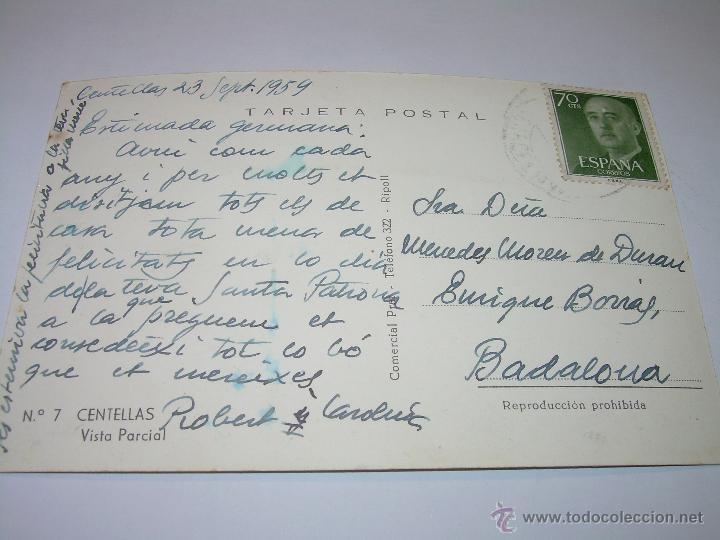 Centellas 23 Sept. 1959
TARJETA POSTAL
Estimada germana:
Avui com cada
any i per molts et
desitjam tots els de
casa tota mena de
felicitats en lo dia
de la teva Santa Patrona
a la que preguem et
consedeixi tot lo bó
que et mereixes
Robert i
Nº 7 CENTELLAS
Vista Parcial
Comercial Teléfono 322 - Ripoll
70
CTS
ESPAÑA
CORREOS
Sra Dña
Mercedes Moreu de Duran
Enrique Borrás,
Badalona
Reproducción prohibida
© todocoleccion
www.todocoleccion.net